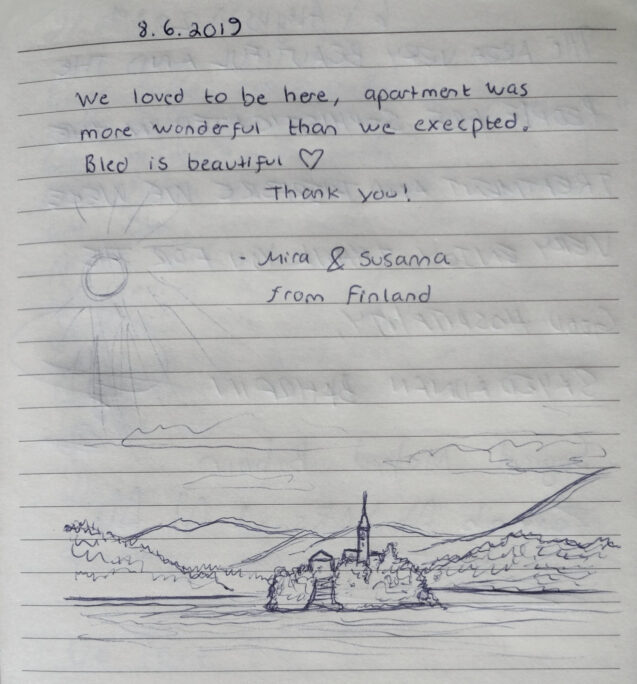 8.6.2019
We loved to be here, apartment was
more wonderful than we execpted.
Bled is beautiful ♡
Thank you!
- Mira & Susanna
from Finland